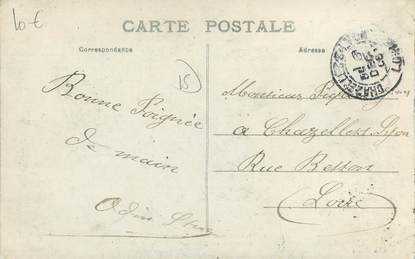 10 €
CARTE POSTALE
Correspondance
Adresse
15
Bonne Poignée
de main
Odin
Monsieur
a Chazelles s Lyon
Rue Besson
Loire